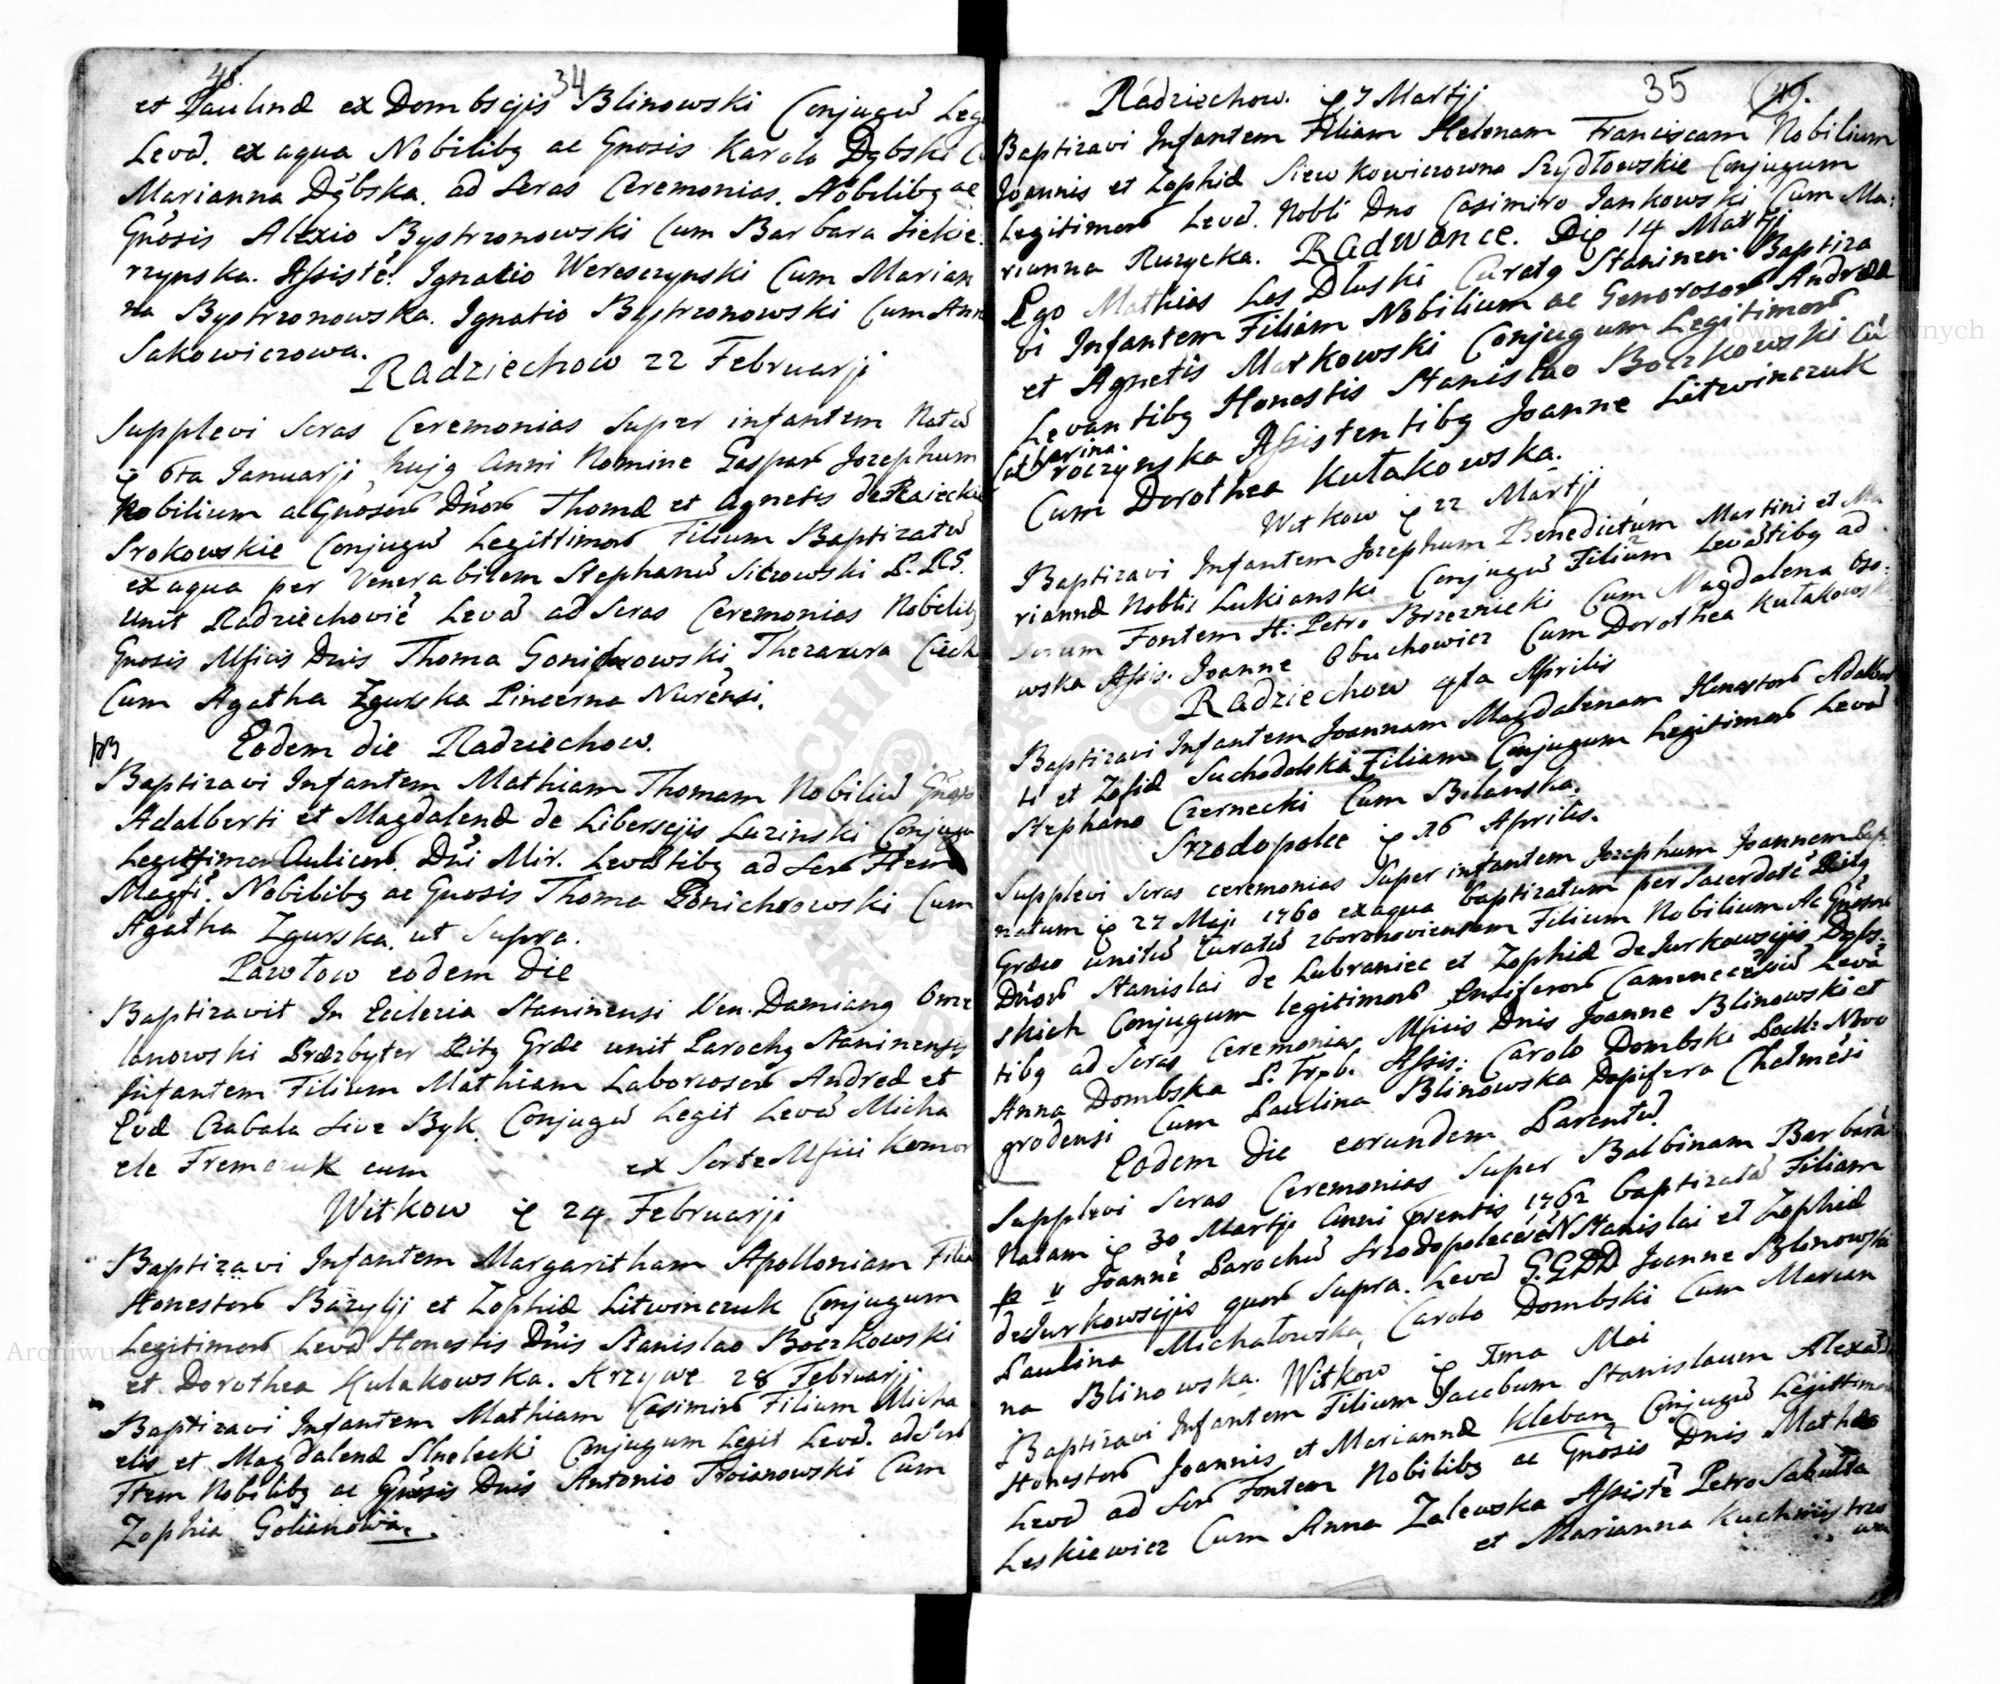 48. 34
et Paulinæ ex Dombscijs Blinowski Conjugū Leg
Levā. ex aqua Nobilibg ac Gnosis Karolo Dąbski Cu
Marianna Dąbska. ad Seras Ceremonias. Nobilibg ac
Gnosis Alexio Bystrzonowski Cum Barbara Ziekie:
rzynska. Assistē. Ignatio Wereszzynski Cum Marian
na Bystrzonowska. Ignatio Bystrzonowski Cum Ann
Sakowiczowa.
Radziechow 22 Februarji
Supplevi Scras Ceremonias Super infantem Natū
6ta Januarji hujg Anni Nomine Gaspar Josephum
Nobilium ac Gnosor Dnor Thomæ et Agnetis de Raiecki
Srokowskie Conjugū Legittimor Filium Baptizatū
ex aqua per Venerabilem Stephanū Sitzowski P. RG.
Unit Radziechovié Levā ad Scras Ceremonias Nobilib
Gnosis Mficis Dnis Thoma Thezaura Ciech
Cum Agatha Zgurska Pincerna Nurensi.
Eodem die Radziechow.
Baptizavi Infantem Mathiam Thomam Nobiliū Gnoso
Adalberti et Magdalenæ de Libersejis Luzinski Conjugu
Legittimor Aulicor Dni Mir. Levātibg ad Scr Ftem
Magfi. Nobilibg ac Gnosis Thoma Cum
Agatha Zgurska. ut Supra.
Pawłow eodem Die
Baptizavit In Ecclezia Staninensi Ven. Damiang Omie
lanowski Præzbyter Ritg Græ unit Parochg Staninensis
Infantem Filium Mathiam Laboriosor Andreæ et
Evæ Czabala Sive Byk Conjugū Legit Levā Micha
ele Fremczuk cum ex Sorte Mfici Komor
Witkow 24 Februarji
Baptizavi Infantem Margaritham Apolloniam Filia
Honestor Bazylji et Zophiæ Litwinczuk Conjugum
Legitimor Levā Honestis Dnis Stanislao Boczkowski
et Dorothea Kulakowska. Krzywe 28 Februarji
Baptizavi Infantem Mathiam Casimir Filium Micha
elis et Magdalenæ Conjugum Legit Levā. ad Scr
Ftem Nobilibg ac Gnosis Dnis Antonio Troianowski Cum
Zophia Golianowa.
35 49.
Radziechow. 7 Martji
Baptizavi Infantem Filiam Helenam Franciscam Nobilium
Joannis et Zophiæ Siewkowiczowna Szydłowskie Conjugum
Legitimor Levā. Nobli Dno Casimiro Jankowski Cum Ma:
rianna Ruzycka. Radwance. Die 14 Martji
Ego Mathias Les Dłuski Curatg Staninen: Baptiza
vi Infantem Filiam Nobilium ac Generosor Andreæ
et Agnetis Markowski Conjugum Legitimor
Levantibg Honestis Stanislao Boczkowski Cū
Catharina
roczynska Assistentibg Joanne Litwinczuk
Cum Dorothea Kułakowska.
Witkow 22 Martji
Baptizavi Infantem Josephum Benedictum Martini et Ma
riannæ Noblii Lukianski Conjugū Filium Levātibg ad
Scrum Fontem H: Petro Brzeznicki Cum Magdalena Oso:
wska Assis. Joanne Obuchowicz Cum Dorothea Kułakowsk
Radziechow 4ta Aprilis
Baptizavi Infantem Joannam Magdalenam Honestor Adalber
ti et Zofiæ Suchodolska Filiam Conjugum Legitimor Levā
Stephano Czernecki Cum Bilanska.
Srzodopolce 26 Aprilis.
Supplevi Scras ceremonias Super infantem Josephum Joannem Bap:
natum 27 Maji 1760 ex aqua baptizatum per Sacerdotē Ritg
Græco unitū Curatū zboronoviensem Filium Nobilium Ac Gnosor
Dnor Stanislai de Lubraniec et Zophiæ de Jurkowscijs Dąbs:
skich Conjugum legitimor Ensiferor Camenecēsiū Levā
tibg ad Scras Ceremonias Mficis Dnis Joanne Blinowski et
Anna Dombska P. Trpb. Assis: Carolo Dombski Pocill: Novo
grodensi Cum Paulina Blinowska Dapifera Chelmēsi
Eodem Die eorundem Parentū
Supplevi Scras Ceremonias Super Balbinam Barbara
Natam 30 Martji Anni præntis 1762 baptizatā Filiam
p v Joannē Parochū Srzodopolecēsē N Stanislai et Zophiæ
de Jurkowscijs quor Supra. Levā G. G DD Joanne Blinowski
Paulina Michałowska, Carolo Dombski Cum Marian
na Blinowska. Witkow Ima Mai
Baptizavi Infantem Filium Jacobum Stanislaum Alexād
Honestor Joannis et Mariannæ Kleban Conjugū Legittimor
Levā ad Scr Fontem Nobilibg ac Gnosis Dnis Mathæo
Leskiewicz Cum Anna Zalewska Assistē Petro Sabulta
et Marianna Kuchmistrzo
wa